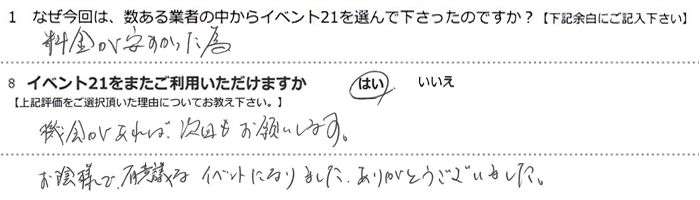 1 なぜ今回は、数ある業者の中からイベント21を選んで下さったのですか？【下記余白にご記入下さい】
料金が安かった為
8 イベント21をまたご利用いただけますか はい いいえ
【上記評価をご選択頂いた理由についてお教え下さい。】
機会があれば、次回もお願いします。
お陰様で、有意義な イベントになりました、ありがとうございました。